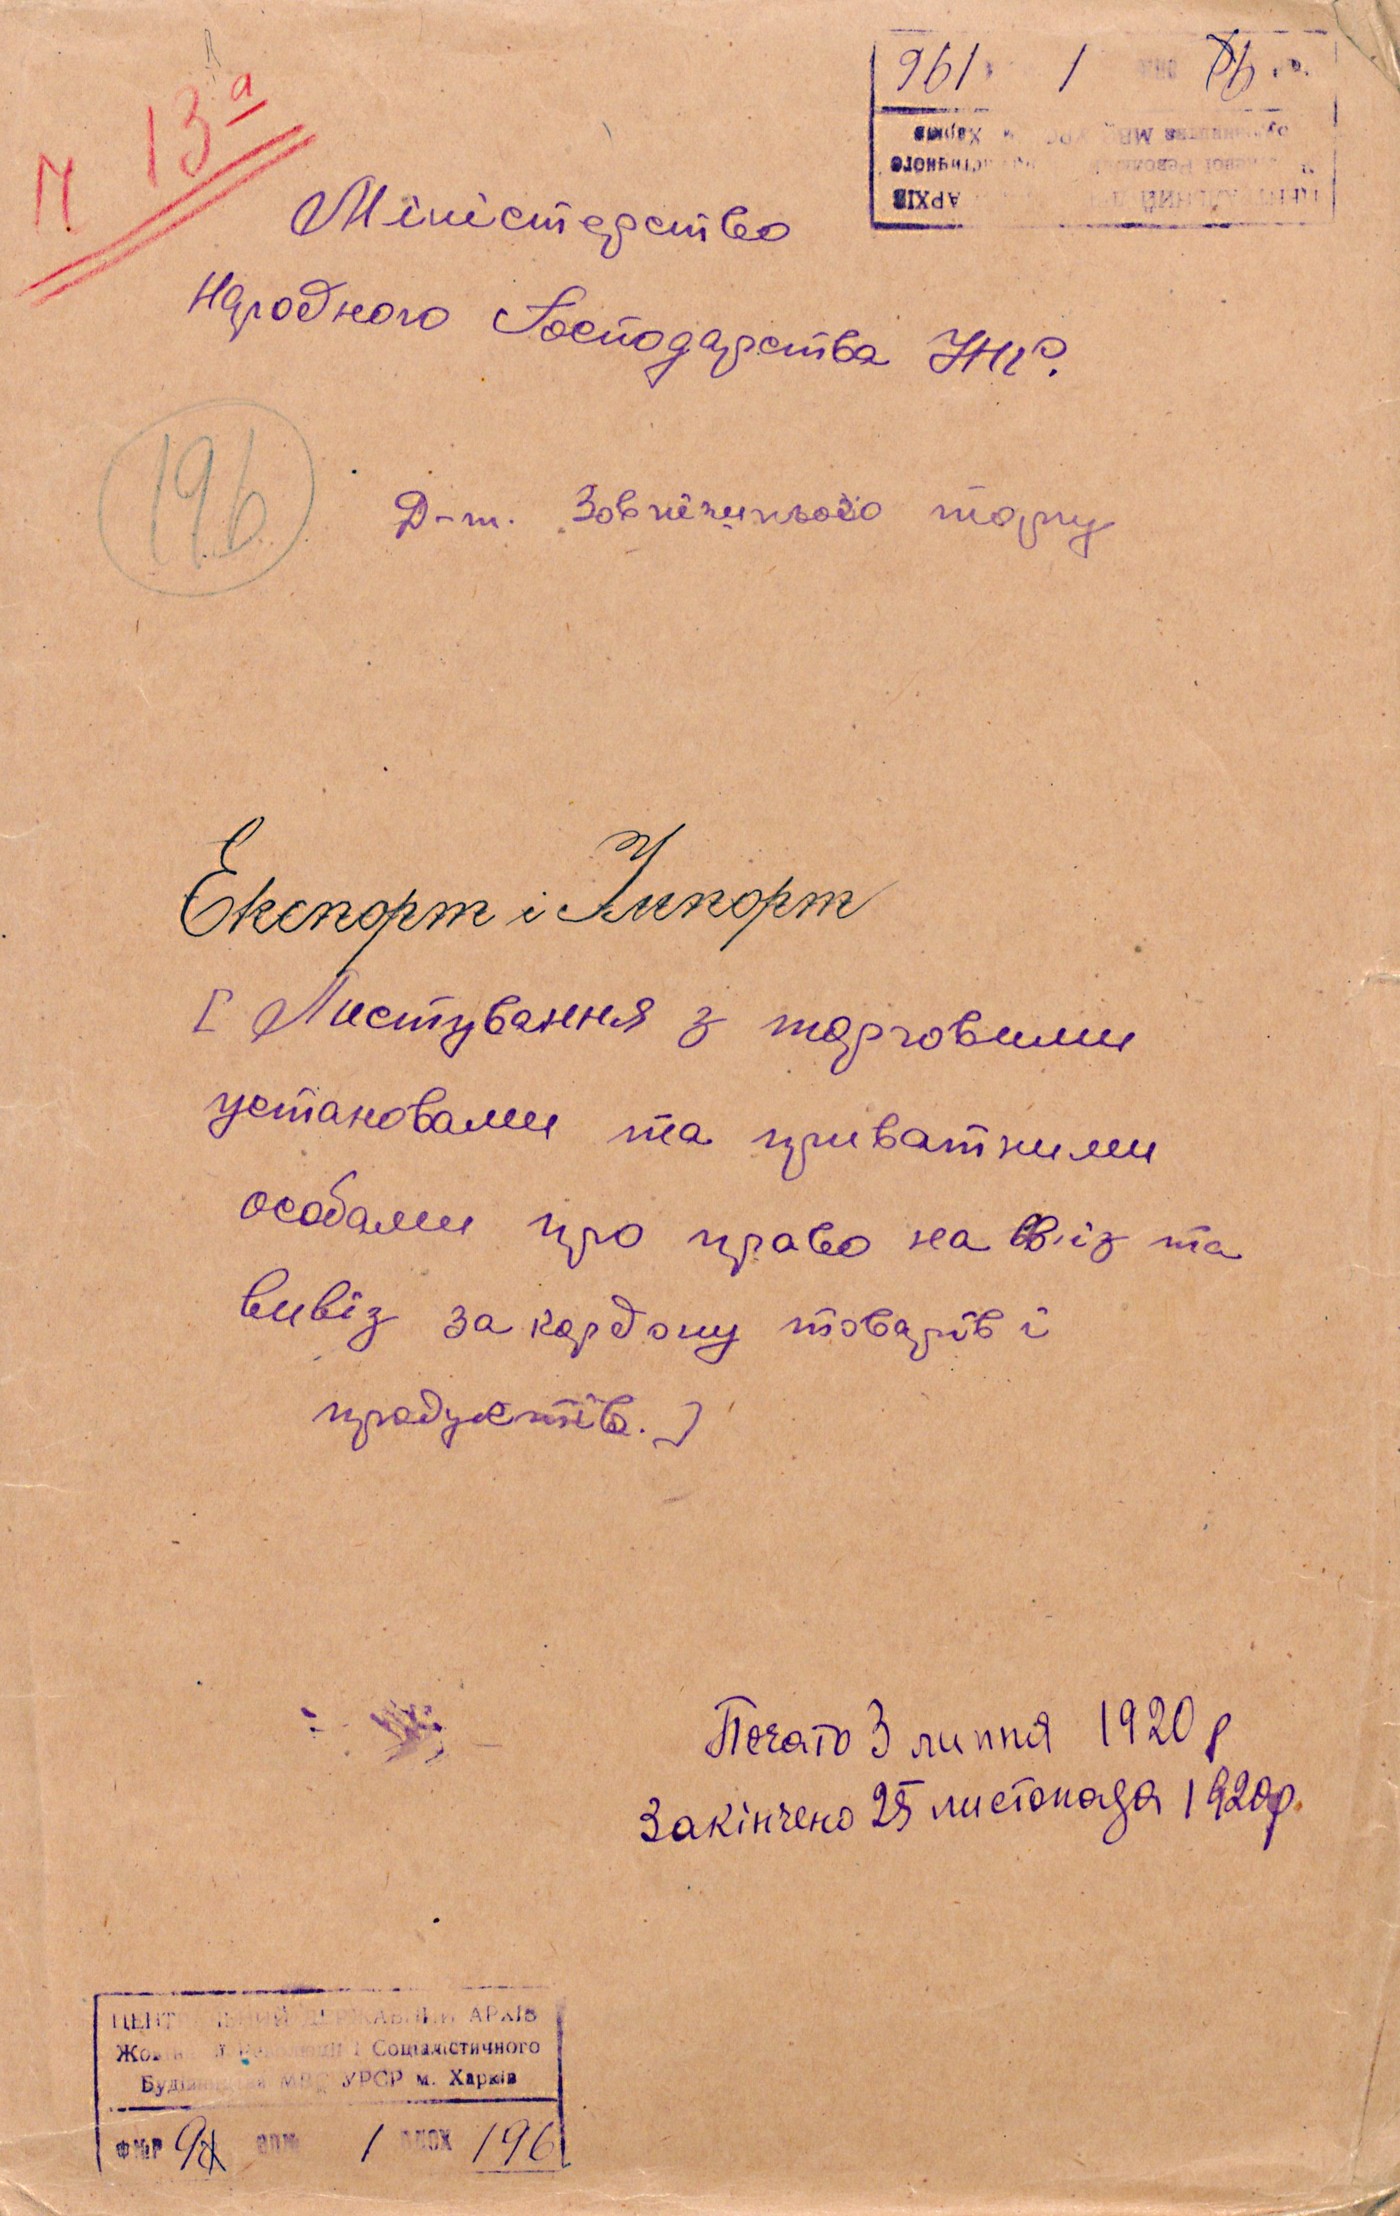 Ч 13а
961 1 96
Міністерство
Народного Господарства УНР.
196
Д-т. Зовнішнього торгу
Експорт і Імпорт
[Листування з торговими
установами та приватними
особами про право на ввіз та
вивіз за кордону товарів і
продуктів.]
Почато 3 липня 1920 р
Закінчено 25 листопада 1920р.
ЦЕНТРАЛЬНИЙ ДЕРЖАВНИЙ АРХІВ
Жовтневої Революції і Соціалістичного
Будівництва МВС УРСР м. Харків
Ф№Р оп№ 1 од.зх 196